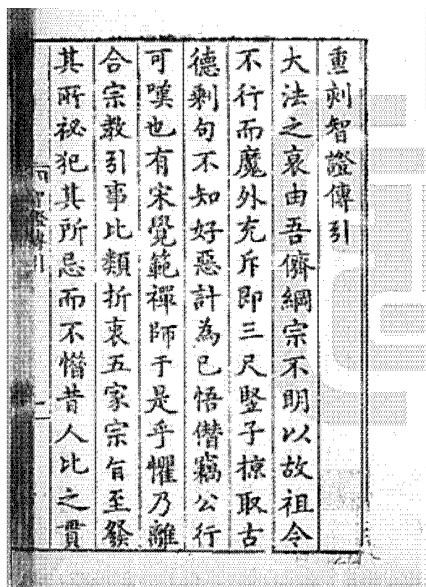 重刻智證傳引
大法之衰由吾儕綱宗不明以故祖令
不行而魔外充斥即三尺豎子掠取古
德剩句不知好惡計為已悟僭竊公行
可嘆也有宋覺範禪師于是乎懼乃離
合宗教引事比類折衷五家宗旨至發
其所祕犯其所忌而不惜昔人比之貫